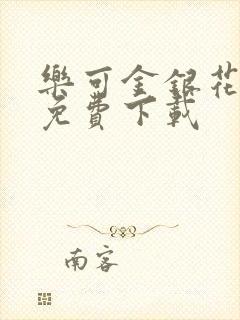 樂可金銀花
免費下載
南客